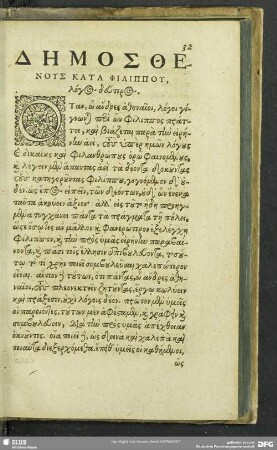 32
ΔΗΜΟΣΘΕ
ΝΟΥΣ ΚΑΤΑ ΦΙΛΙΠΠΟΥ,
λόγος δεύτερος.
Ὅταν, ὦ ἄνδρες ἀθηναῖοι, λόγοι γί-
γνωνται περὶ ὧν Φίλιππος πράτ-
τει, καὶ βιάζεται παρὰ τὴν εἰρή-
νην ἀεὶ, τοὺς ὑπὲρ ἡμῶν λόγους
καὶ δικαίους καὶ φιλανθρώπους ὁρῶ φαινομένους,
λέγειν μὲν ἅπαντας ἀεὶ τὰ δέοντα δοκοῦντας
τοὺς κατηγοροῦντας Φιλίππου, γιγνόμενον δ' οὐ-
δὲν ὡς ἔπος εἰπεῖν, τῶν δεόντων, οὐδ' ὧν ἕνεκα
ταῦτα ἀκούειν ἄξιον· ἀλλ' εἰς τοῦτ' ἤδη προηγ-
μένα τυγχάνει πάντα τὰ πράγματα τῇ πόλει,
ὥσθ' ὅσῳ τις ἂν μᾶλλον καὶ φανερώτερον ἐξελέγχῃ
Φίλιππον, καὶ τὴν πρὸς ὑμᾶς εἰρήνην παραβαί-
νοντα, καὶ πᾶσι τοῖς ἕλλησιν ἐπιβουλεύοντα, τοσού-
τῳ τὸ τί χρὴ ποιεῖν συμβουλεῦσαι χαλεπώτερον
εἶναι. αἴτιον δὲ τούτων, ὅτι πάντας, ὦ ἄνδρες ἀθη-
ναῖοι, τοὺς πλεονεκτεῖν ζητοῦντας, ἔργῳ κωλύειν
καὶ πράξεσιν, οὐχὶ λόγοις δέον. πρῶτον μὲν ἡμεῖς
οἱ παριόντες, τούτων μὲν ἀφέσταμεν, καὶ γράφειν καὶ
συμβουλεύειν, τὴν πρὸς ὑμᾶς ἀπέχθειαν
ὀκνοῦντες. οἷα ποιεῖ δὲ, ὡς δεινὰ καὶ χαλεπὰ καὶ
τοιαῦτα διεξερχόμεθα. ἔπειθ' ὑμεῖς οἱ καθήμενοι,
ὡς
SLUB